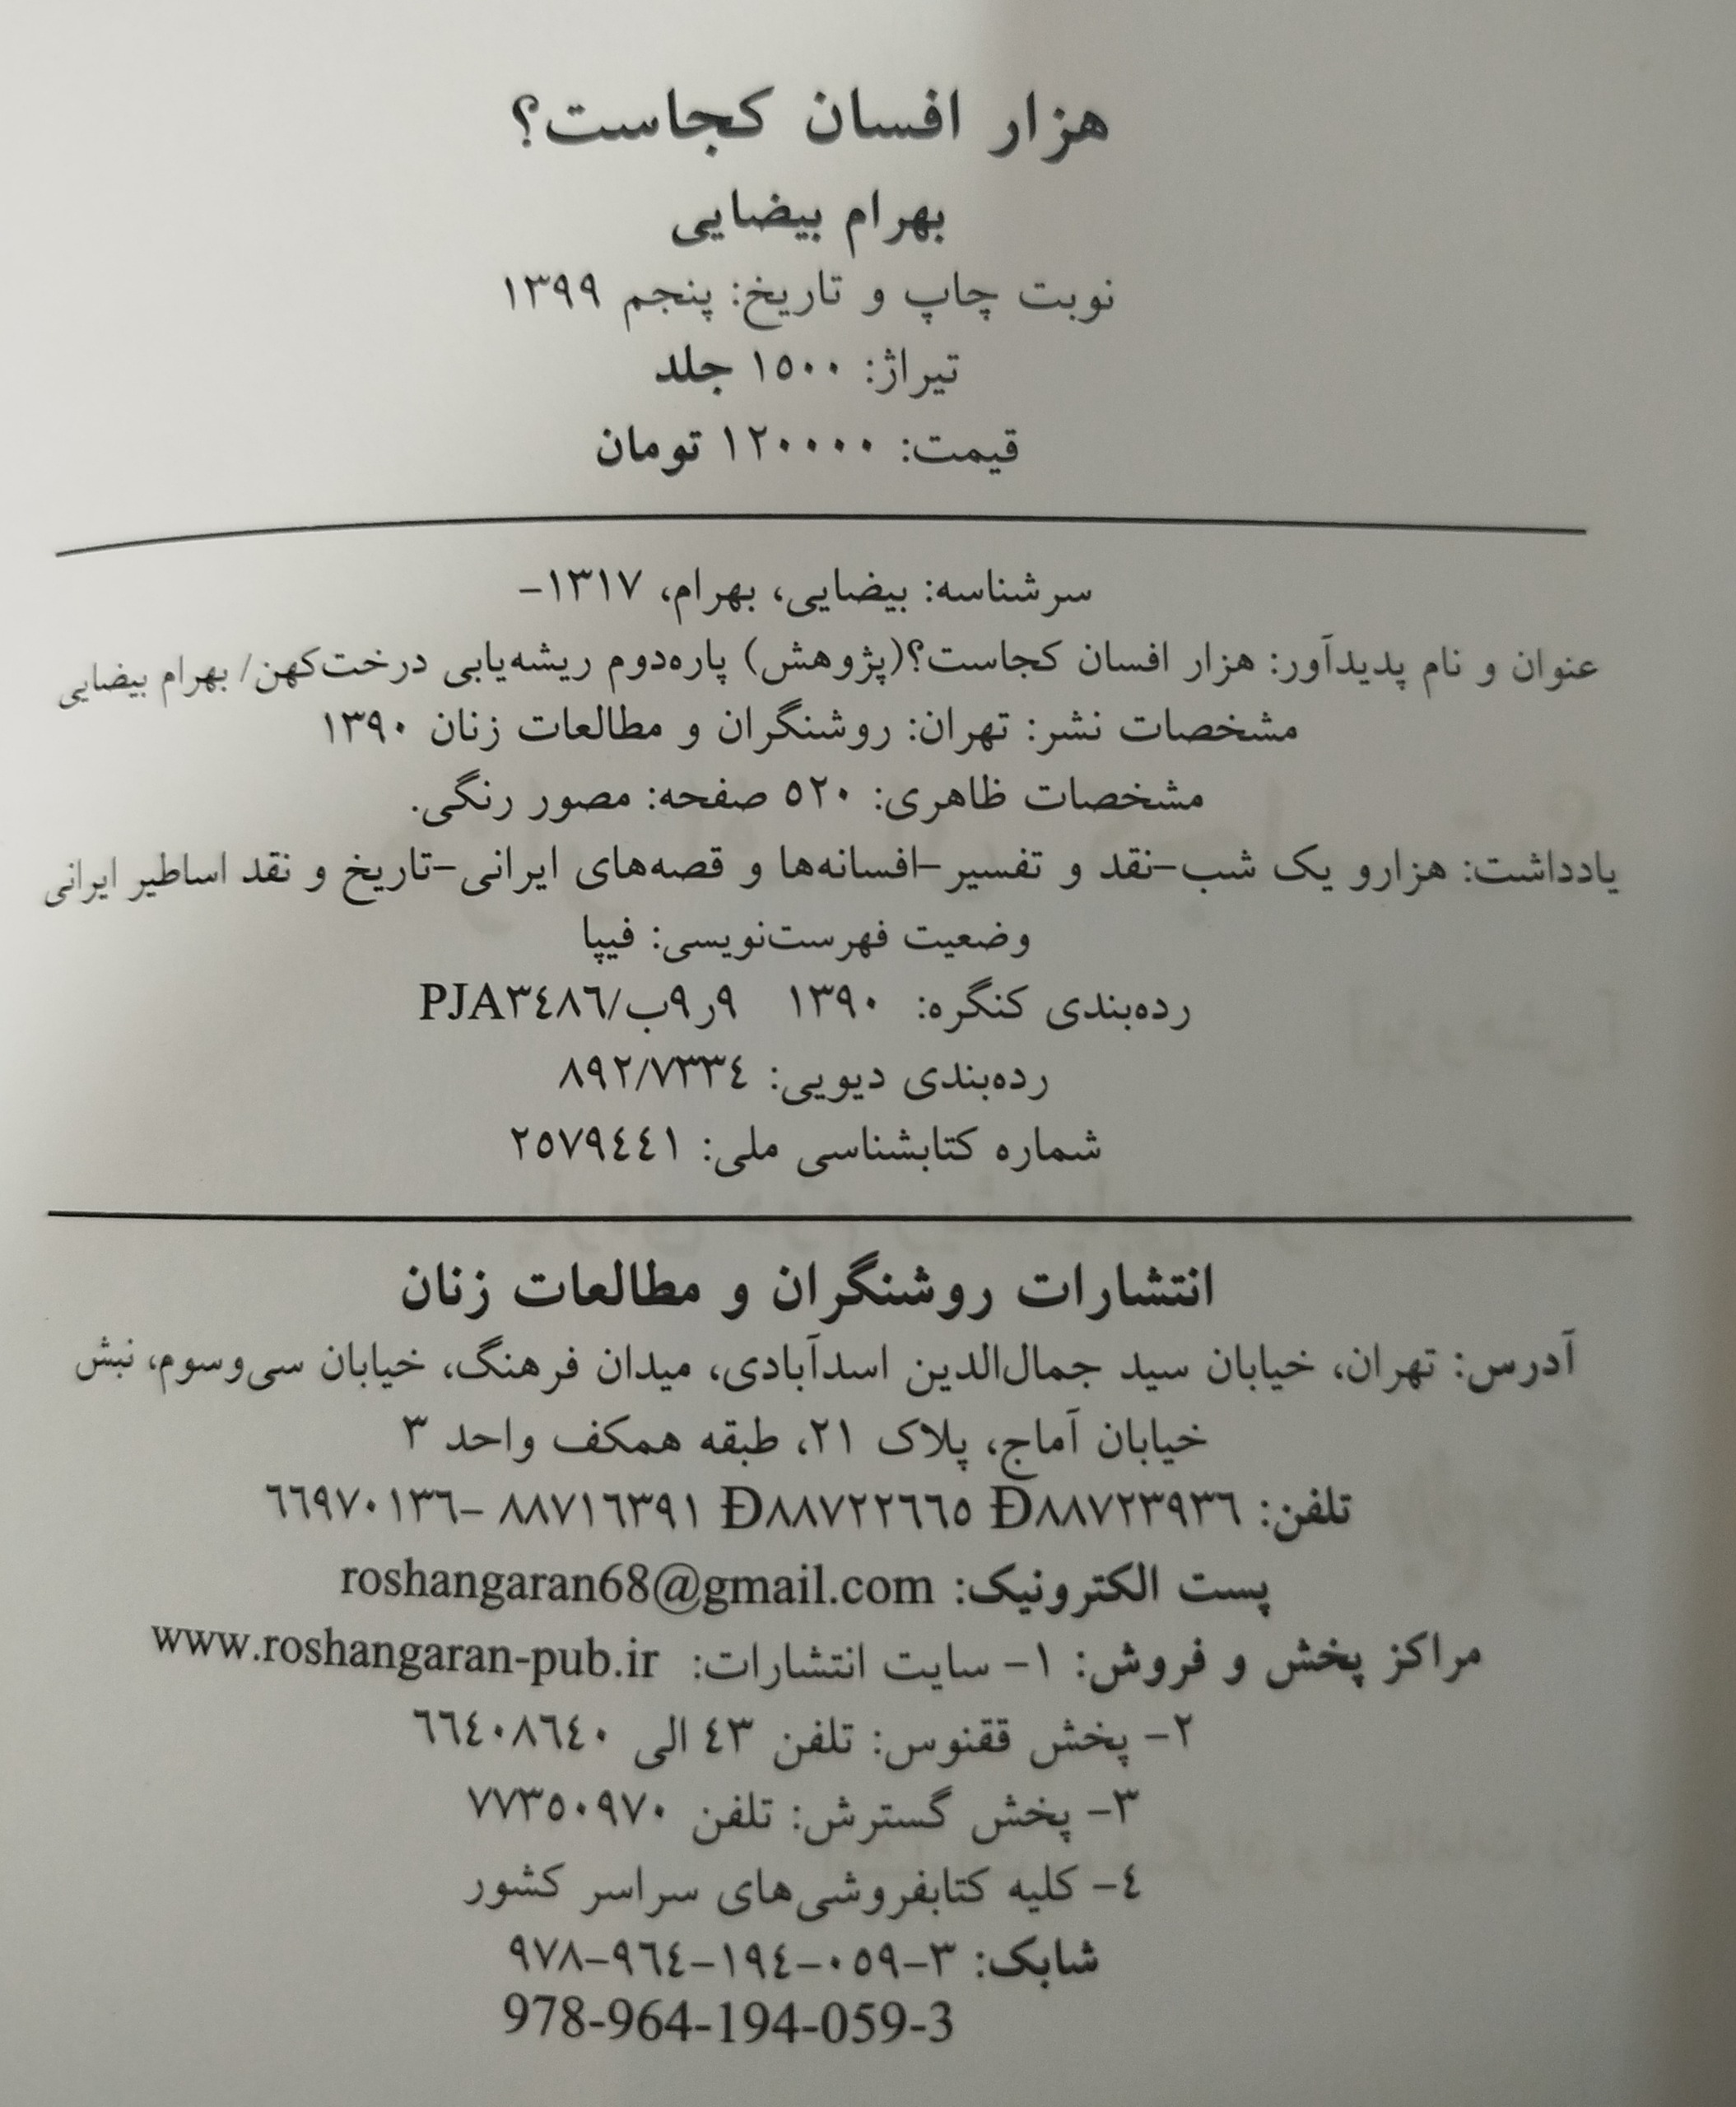 هزار افسان کجاست؟
بهرام بیضایی
نوبت چاپ و تاریخ: پنجم ۱۳۹۹
تیراژ: ۱۵۰۰ جلد
قیمت: ۱۲۰۰۰۰ تومان
سرشناسه: بیضایی، بهرام، ۱۳۱۷-
عنوان و نام پدیدآور: هزار افسان کجاست؟(پژوهش) پاره‌دوم ریشه‌یابی درخت‌کهن/ بهرام بیضایی
مشخصات نشر: تهران: روشنگران و مطالعات زنان ۱۳۹۰
مشخصات ظاهری: ۵۲۰ صفحه: مصور رنگی.
یادداشت: هزارو یک شب-نقد و تفسیر-افسانه‌ها و قصه‌های ایرانی-تاریخ و نقد اساطیر ایرانی
وضعیت فهرست‌نویسی: فیپا
رده‌بندی کنگره: ۱۳۹۰ ۹ر۹ب/PJA۳٤۸٦
رده‌بندی دیویی: ۸۹۲/۷۳۳٤
شماره کتابشناسی ملی: ۲۵۷۹٤٤۱
انتشارات روشنگران و مطالعات زنان
آدرس: تهران، خیابان سید جمال‌الدین اسدآبادی، میدان فرهنگ، خیابان سی‌وسوم، نبش
خیابان آماج، پلاک ۲۱، طبقه همکف واحد ۳
تلفن: ۸۸۷۲۳۹۳٦Ð ۸۸۷۲۲٦٦۵Ð ۸۸۷۱٦۳۹۱ -٦٦۹۷۰۱۳٦
پست الکترونیک: roshangaran68@gmail.com
مراکز پخش و فروش: ۱- سایت انتشارات: www.roshangaran-pub.ir
۲- پخش ققنوس: تلفن ٤۳ الی ٦٦٤۰۸٦٤۰
۳- پخش گسترش: تلفن ۷۷۳۵۰۹۷۰
٤- کلیه کتابفروشی‌های سراسر کشور
شابک: ۳-۰۵۹-۱۹٤-۹٦٤-۹۷۸
978-964-194-059-3